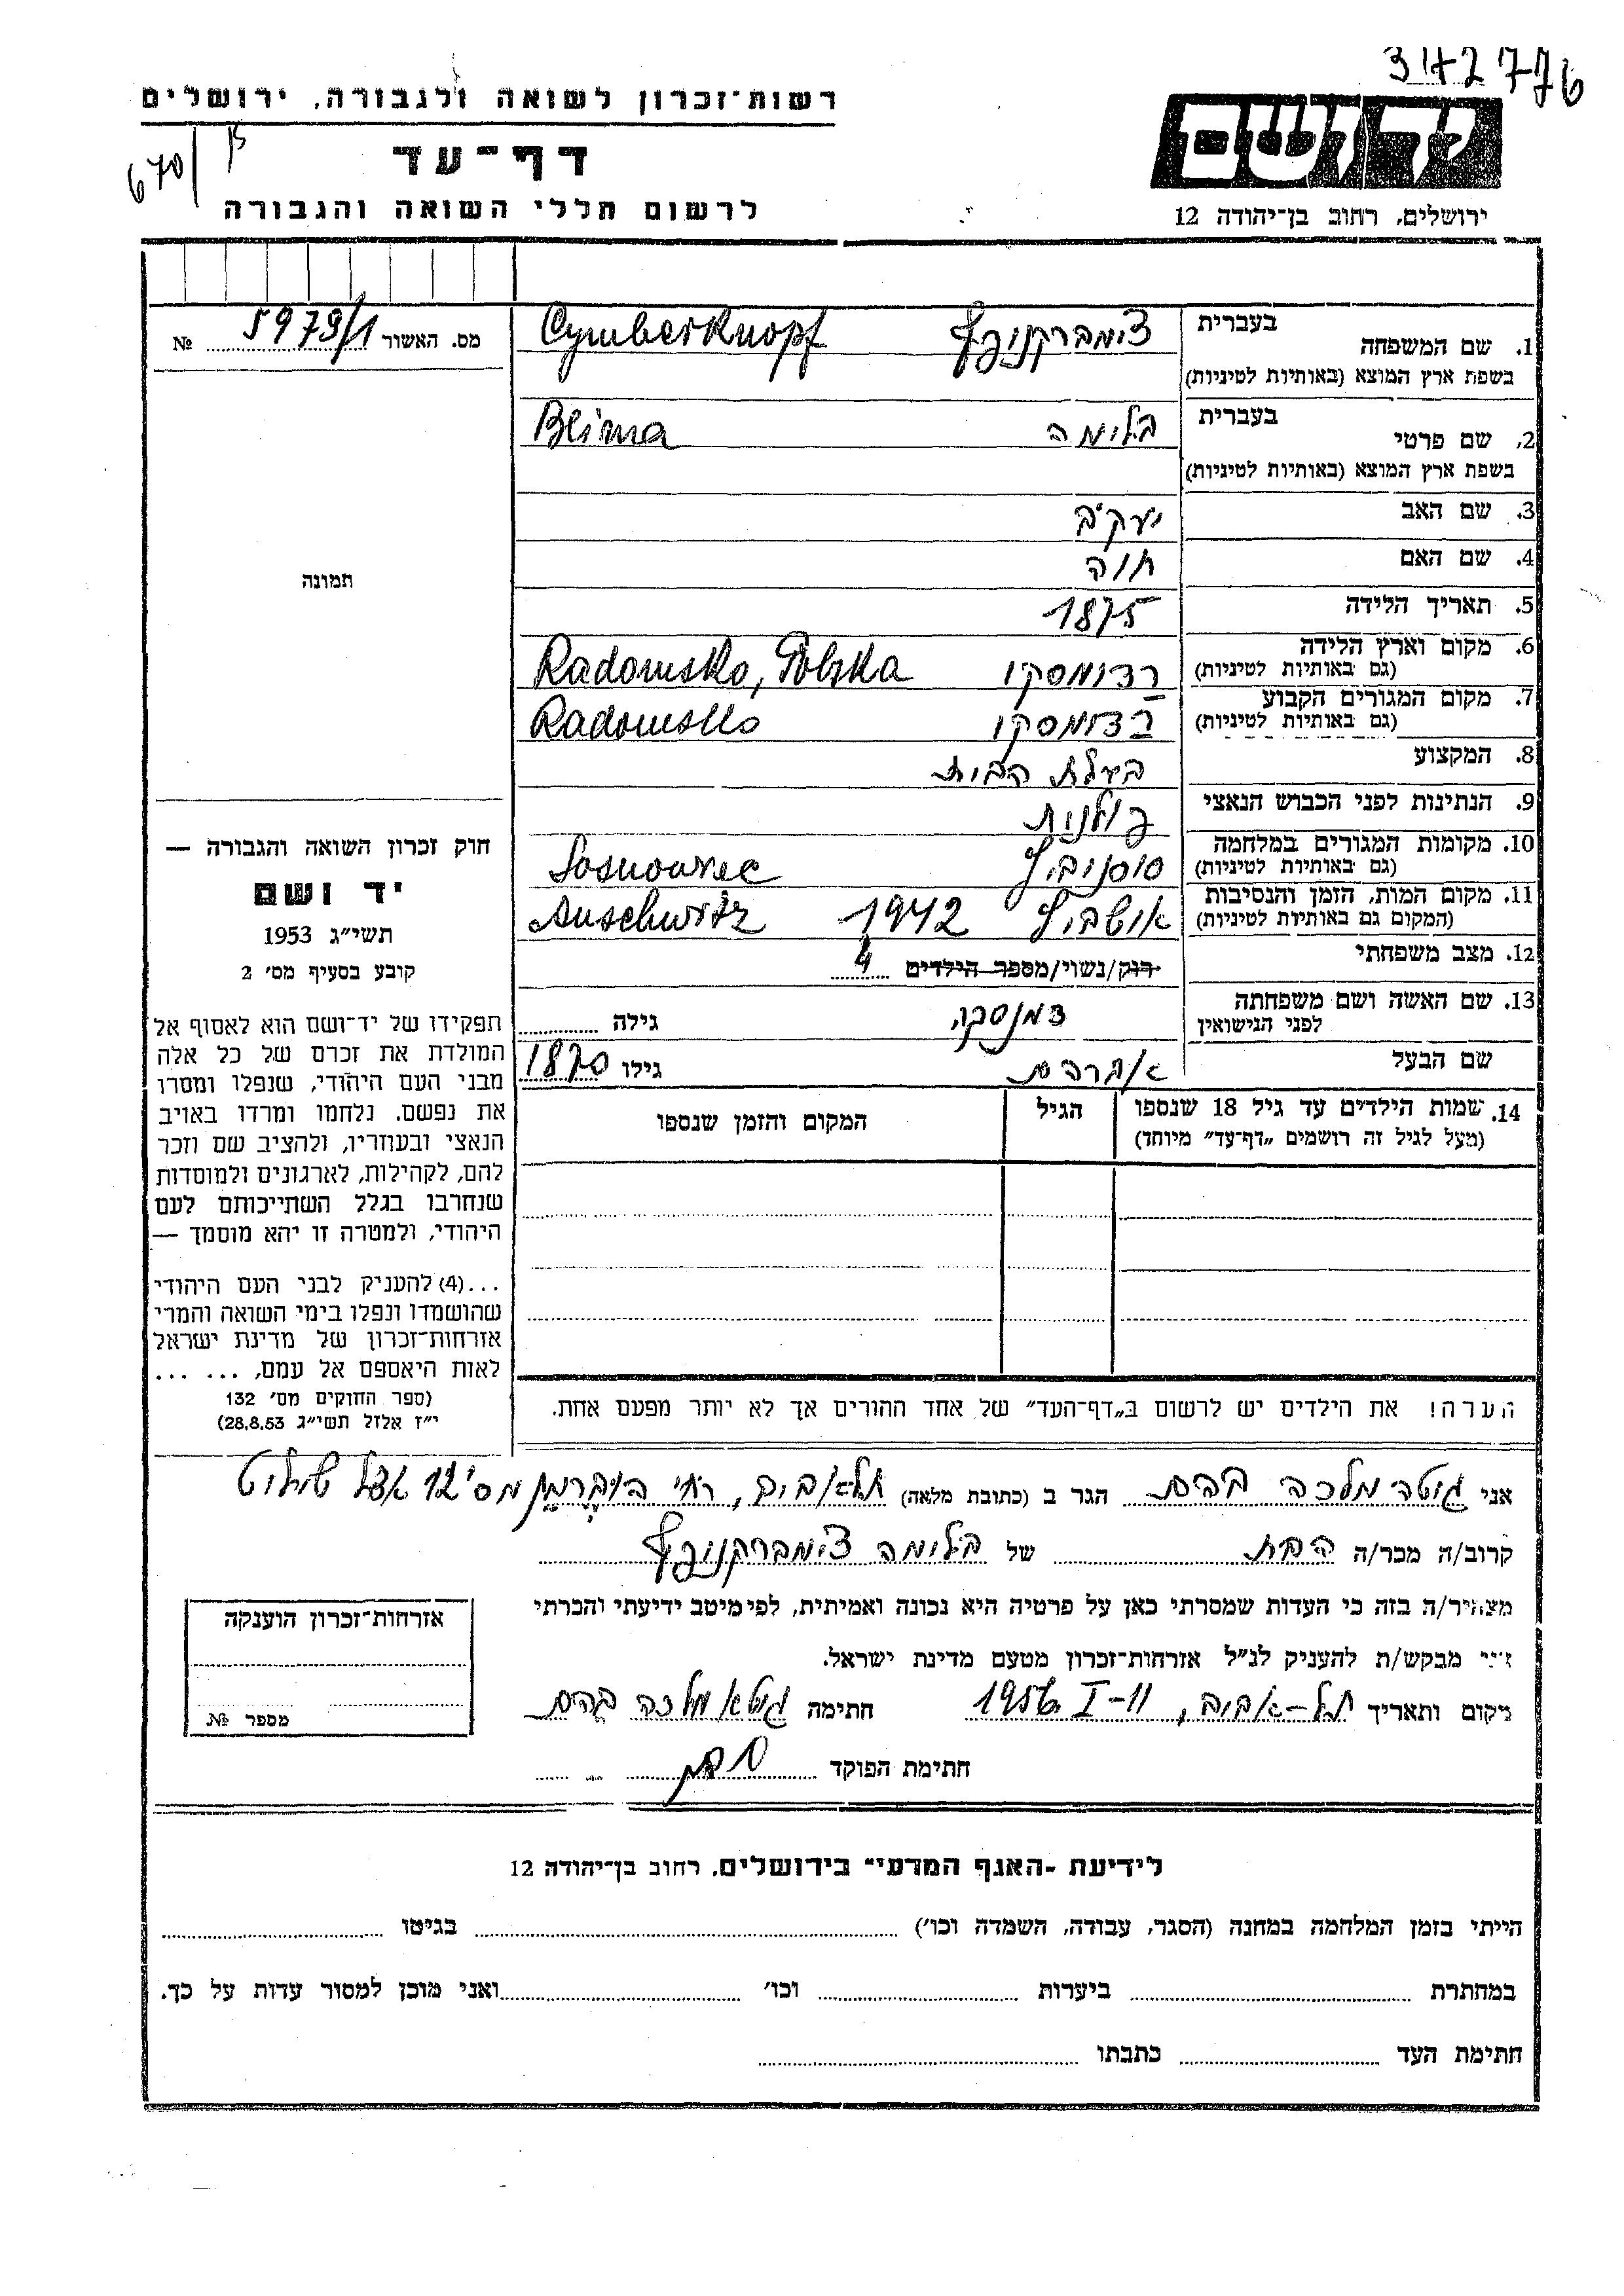 342776
רשות־זכרון לשואה ולגבורה, ירושלים
ידושם
670/
דף־עד
לרשום חללי השואה והגבורה
ירושלים, רחוב בן־יהודה 12
1. שם המשפחה בעברית צימברקנופף Cymberknopf
בשפת ארץ המוצא (באותיות לטיניות)
מס. האשור 5979/1 №
2. שם פרטי בעברית בלימה Blima
בשפת ארץ המוצא (באותיות לטיניות)
3. שם האב יעקב
4. שם האם חוה
תמונה
5. תאריך הלידה 1875
6. מקום וארץ הלידה רדומסקו Radomsko, Polska
(גם באותיות לטיניות)
7. מקום המגורים הקבוע רדומסקו Radomsko
(גם באותיות לטיניות)
8. המקצוע בעלת הבית
9. הנתינות לפני הכברש הנאצי פולנית
10. מקומות המגורים במלחמה סוסנוביץ Sosnowiec
(גם באותיות לטיניות)
11. מקום המות, הזמן והנסיבות אושביץ 1942 Auschwitz
(המקום גם באותיות לטיניות)
12. מצב משפחתי רוק/נשוי/מספר הילדים 4
13. שם האשה ושם משפחתה לפני הנישואין גילה
שם הבעל אברהם גילו 1870
14. שמות הילדים עד גיל 18 שנספו
(מעל לגיל זה רושמים „דף־עד” מיוחד)
הגיל
המקום והזמן שנספו
חוק זכרון השואה והגבורה —
יד ושם
תשי״ג 1953
קובע בסעיף מס׳ 2
תפקידו של יד־ושם הוא לאסוף אל
המולדת את זכרם של כל אלה
מבני העם היהודי, שנפלו ומסרו
את נפשם. נלחמו ומרדו באויב
הנאצי ובעוזריו, ולהציב שם וזכר
להם, לקהילות, לארגונים ולמוסדות
שנחרבו בגלל השתייכותם לעם
היהודי, ולמטרה זו יהא מוסמך —
...(4) להעניק לבני העם היהודי
שהושמדו ונפלו בימי השואה והמרי
אזרחות־זכרון של מדינת ישראל
לאות היאספם אל עמם, ... ...
(ספר החוקים מס׳ 132
י״ז אלול תשי״ג 28.8.53)
הערה! את הילדים יש לרשום ב„דף־העד” של אחד ההורים אך לא יותר מפעם אחת.
אני גוטה מלכה הגר ב (כתובת מלאה) תל אביב, רח׳ מס׳ 12 אצל
קרוב/ה מכר/ה הבת של בלימה צימברקנופף
מצהיר/ה בזה כי העדות שמסרתי כאן על פרטיה היא נכונה ואמיתית, לפי מיטב ידיעתי והכרתי
אני מבקש/ת להעניק לנ״ל אזרחות־זכרון מטעם מדינת ישראל.
מקום ותאריך תל־אביב, 11-I 1956 חתימה גוטא מלכה
חתימת הפוקד
אזרחות־זכרון הוענקה
מספר №
לידיעת ־האגף המדעי״ בירושלים, רחוב בן־יהודה 12
הייתי בזמן המלחמה במחנה (הסגר, עבודה, השמדה וכו׳) בגיטו
במחתרת ביערות וכו׳ ואני מוכן למסור עדות על כך.
חתימת העד כתבתו